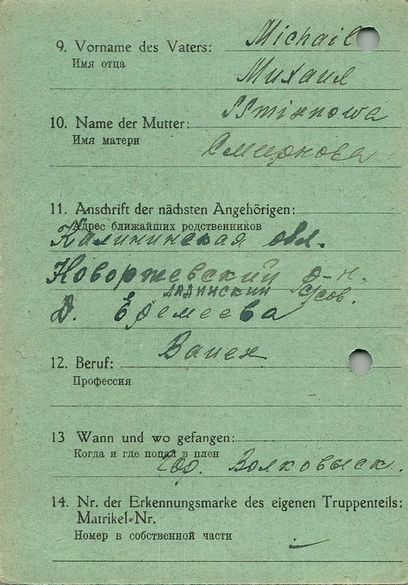 9. Vorname des Vaters: Michail
Имя отца
Михаил
10. Name der Mutter: Smirnowa
Имя матери
Смирнова
11. Anschrift der nächsten Angehörigen:
Адрес ближайших родственников
Калининская обл.
Новоржевский р-н.
Ладинский с/сов.
д. Еремеева
12. Beruf:
Профессия
13 Wann und wo gefangen:
Когда и где попал в плен
гор. Волковыск.
14. Nr. der Erkennungsmarke des eigenen Truppenteils:
Matrikel-Nr.
Номер в собственной части